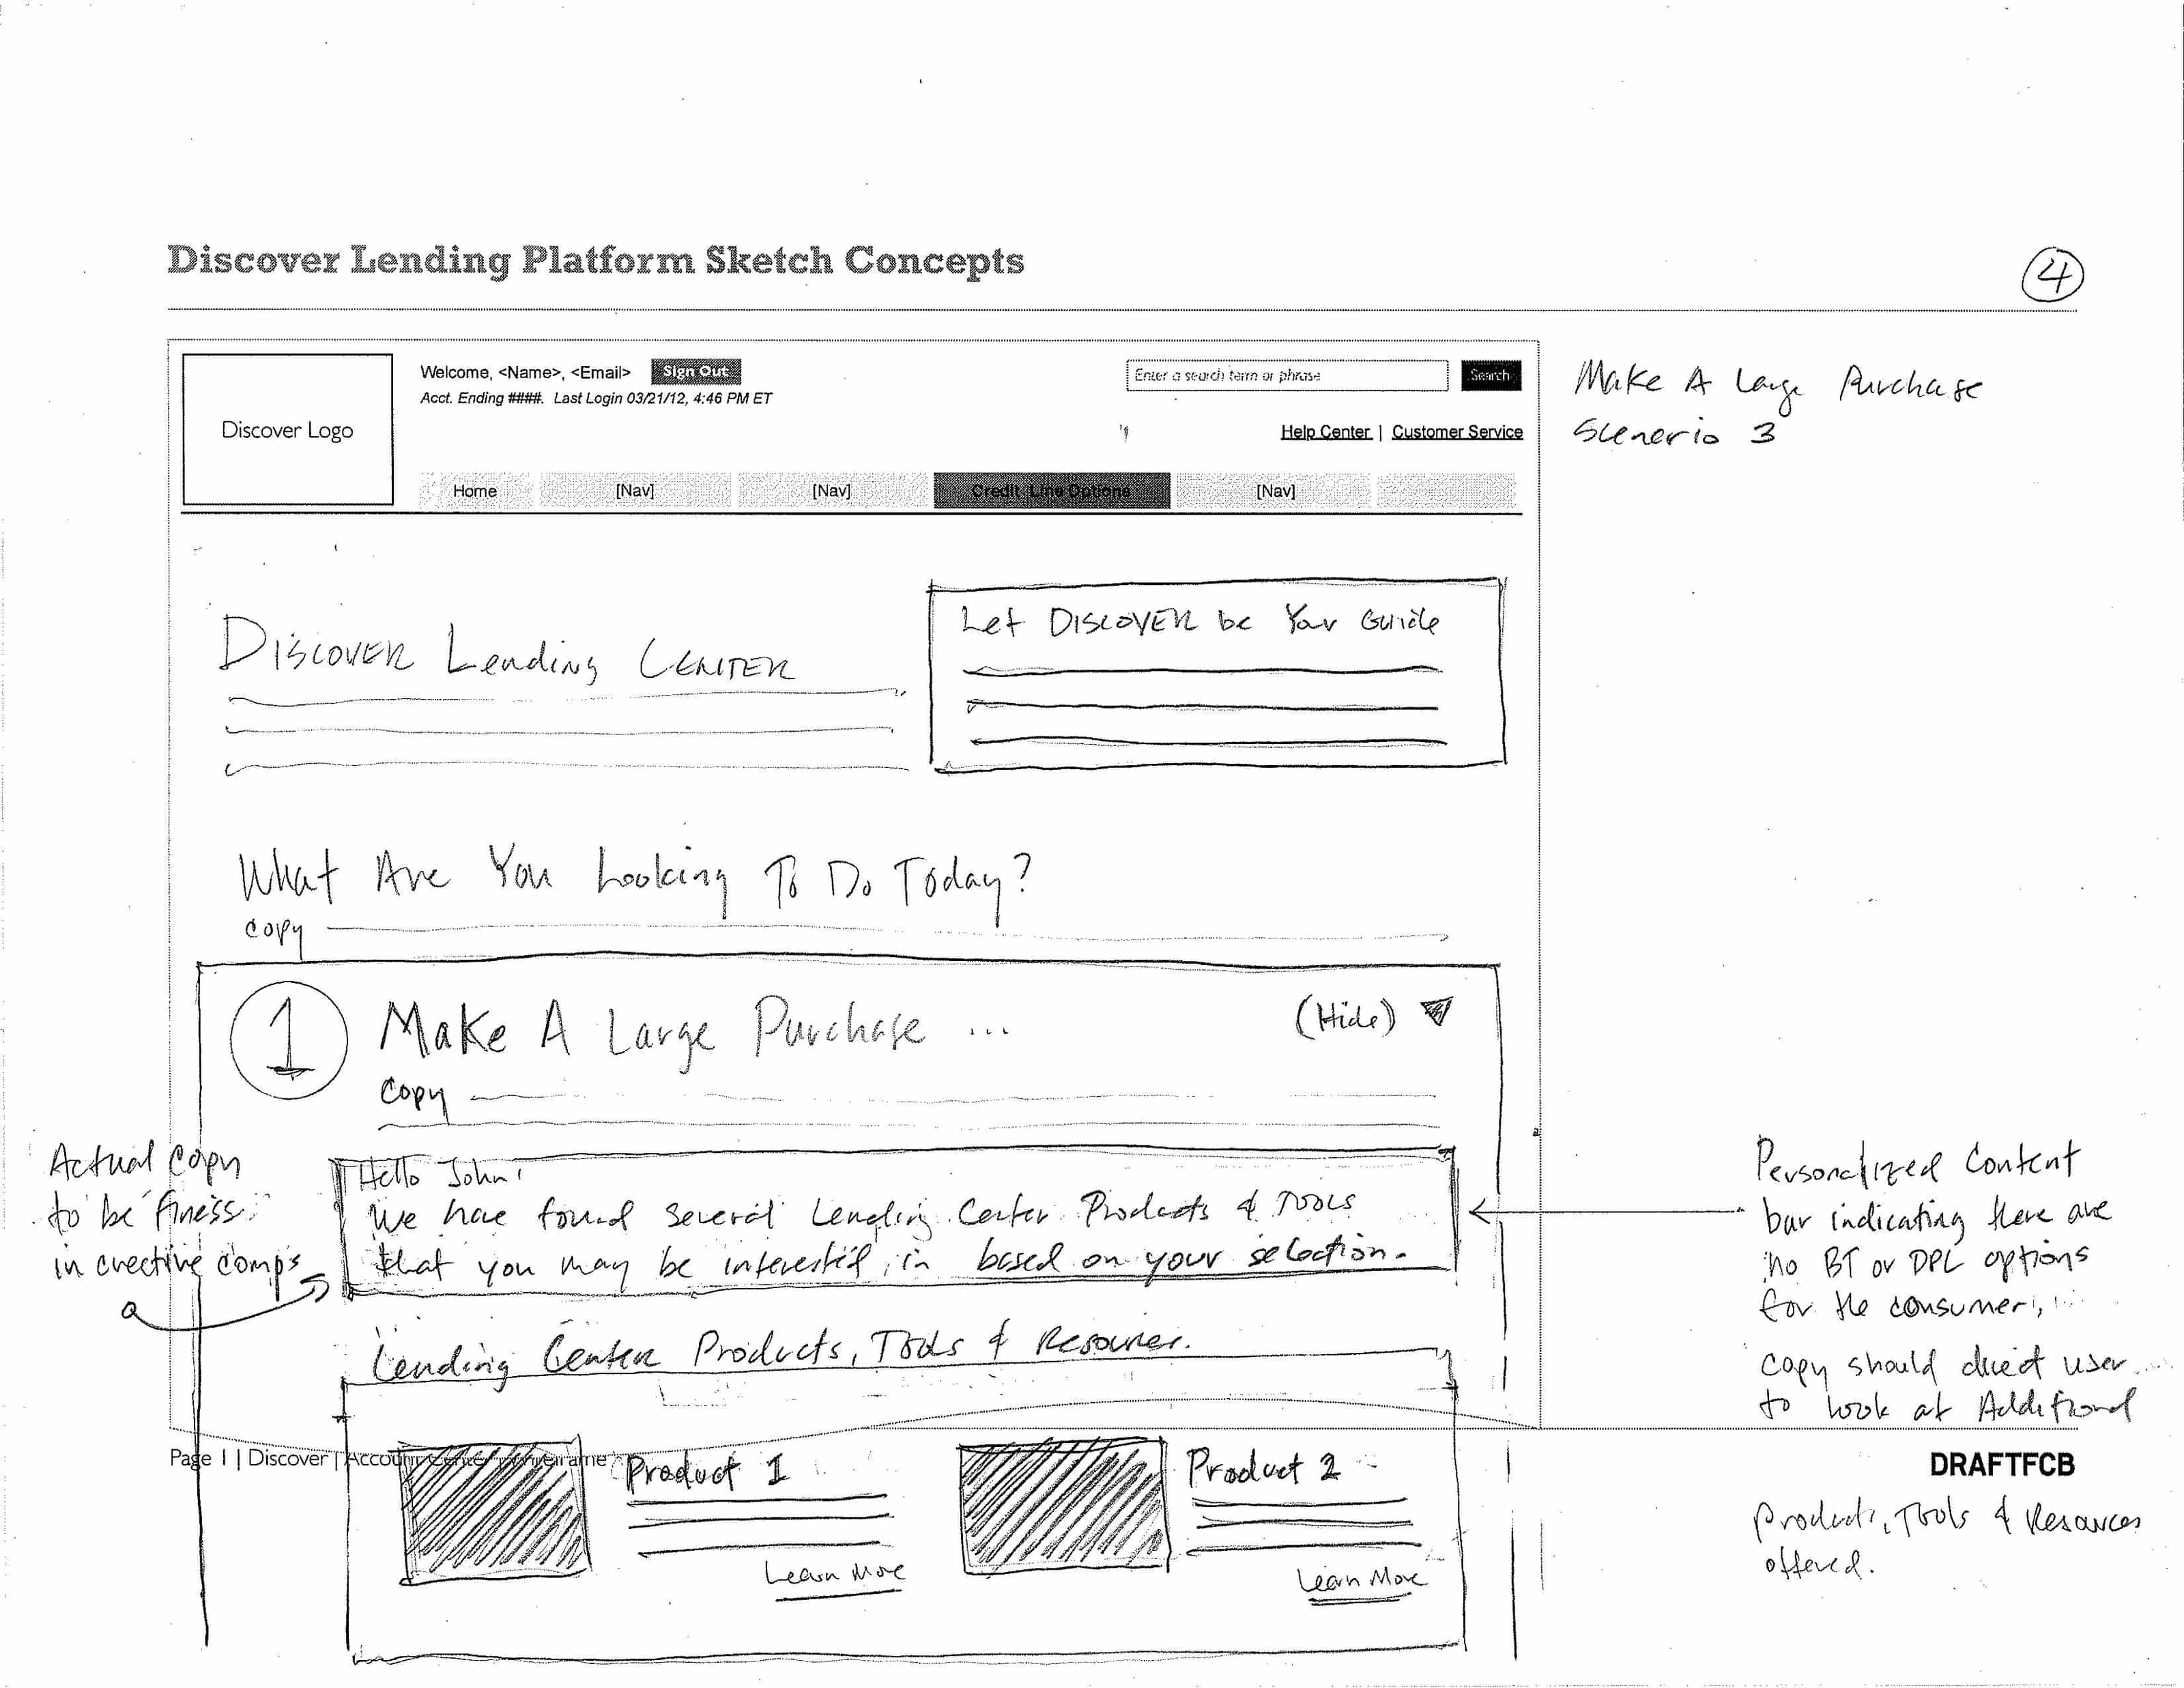 Discover Lending Platform Sketch Concepts
4
Discover Logo
Welcome, <Name>, <Email> Sign Out
Acct. Ending ####. Last Login 03/21/12, 4:46 PM ET
Enter a search term or phrase Search
Help Center | Customer Service
Home [Nav] [Nav] Credit Line Options [Nav]
Make A Large Purchase
Scenerio 3
DISCOVER Lending CENTER
Let DISCOVER be Your Guide
What Are You Looking To Do Today?
copy
1 Make A Large Purchase ... (Hide)
Copy
Actual Copy
to be finess
in creative comps
Hello John!
We have found several Lending Center Products & Tools
that you may be interested in based on your selection.
Personalized Content
bar indicating there are
no BT or DPL options
for the consumer,
copy should direct user
to look at Additional
Products, Tools & Resources
offered.
Lending Center Products, Tools & Resources.
Product 1
Learn More
Product 2
Learn More
Page 1 | Discover | Account Center Wireframe
DRAFTFCB